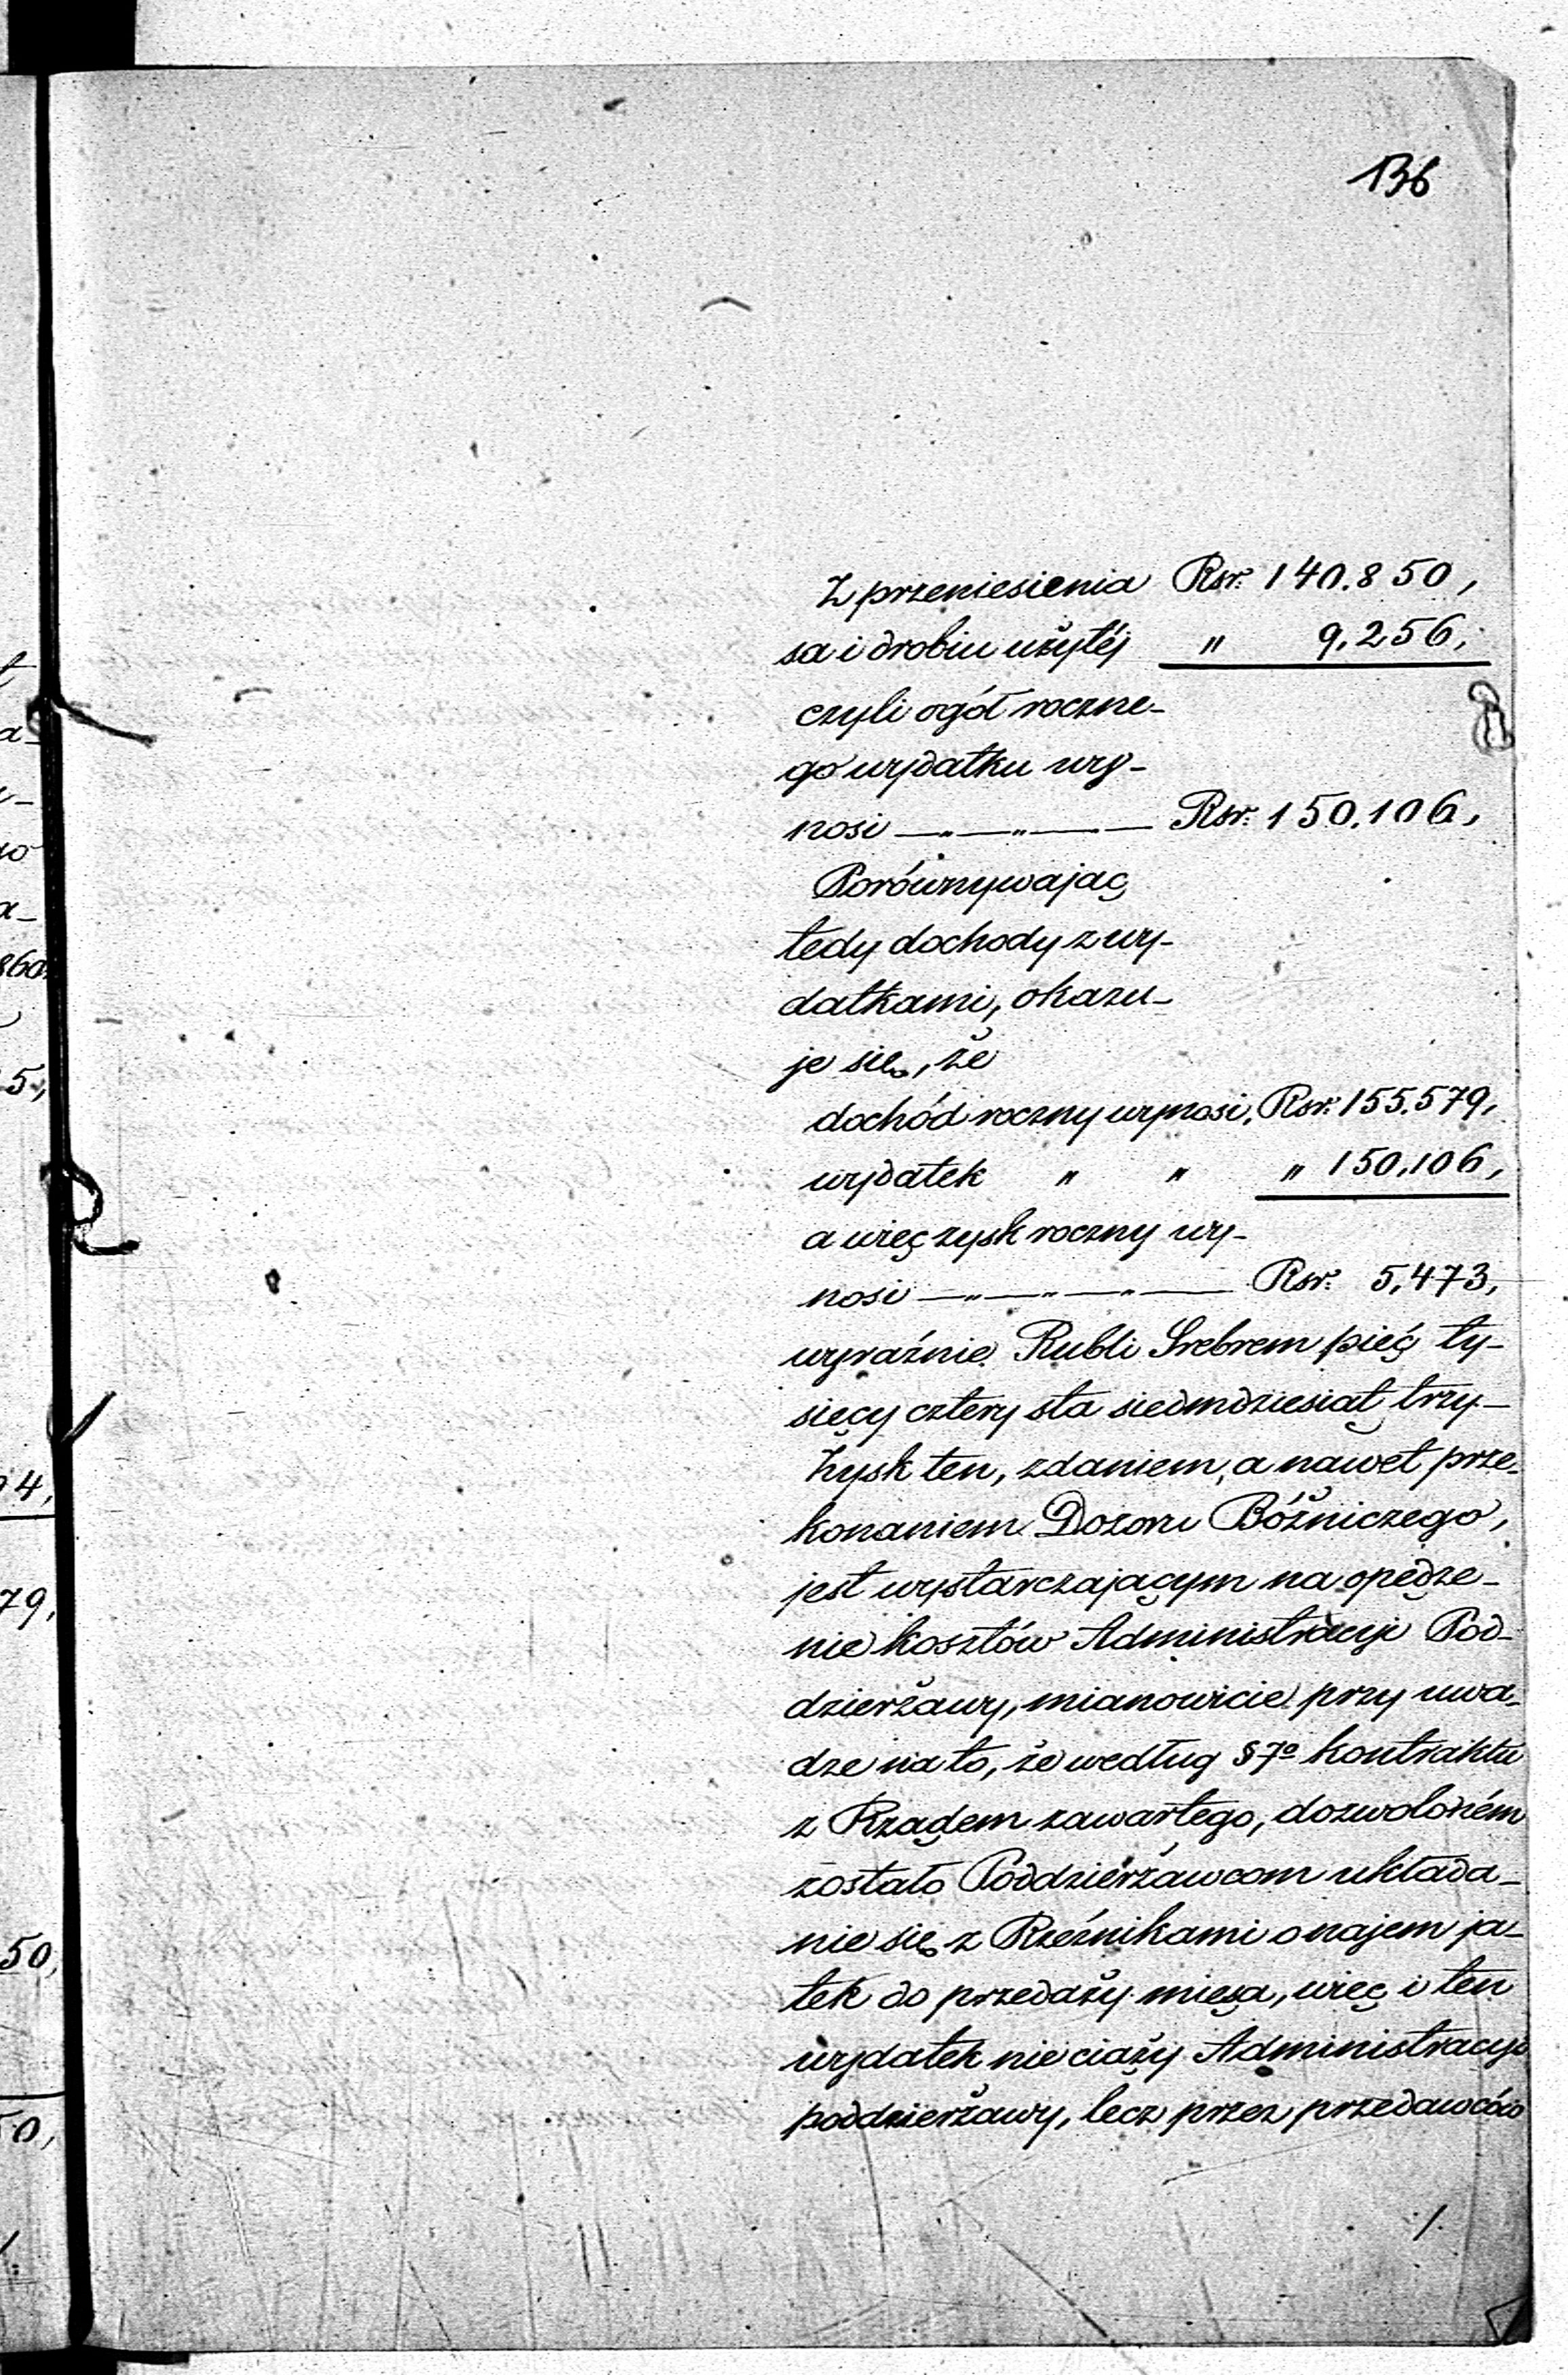 136
Z przeniesienia Rsr. 140.850,
sa i drobiu użytéj " 9,256,
czyli ogół roczne-
go wydatku wy-
nosi —"—"—"— Rsr. 150.106,
Porównywając
tedy dochody z wy-
datkami, okazu-
je się, że
dochód roczny wynosi, Rsr. 155.579,
wydatek " " " 150,106,
a więc zysk roczny wy-
nosi —"—"—"— Rsr. 5,473,
wyraźnie Rubli Srebrem pięć ty-
sięcy cztery sta siedmdziesiąt trzy.—
Zysk ten, zdaniem, a nawet prze-
konaniem Dozoru Bóżniczego,
jest wystarczającym na opędze-
nie kosztów Administracyi Pod-
dzierżawy, mianowicie przy uwa-
dze na to, że według § 7º kontraktu
z Rządem zawartego, dozwoloném
zostało Poddzierżawcom układa-
nie się z Rzeźnikami o najem ja-
tek do przedaży mięsa, więc i ten
wydatek nie ciąży Administracyi
poddzierżawy, lecz przez przedawców
./.
860
5,
4,
79,
50,
50,